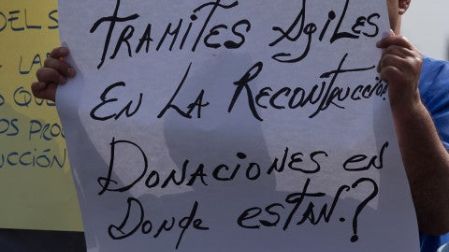 DEL S
LA
QUE
OS PRO
UCCIÓN
TRAMITES AGiLES
EN LA RECONTRUCCION.
DONACiONES EN
DONDE ESTAN.?